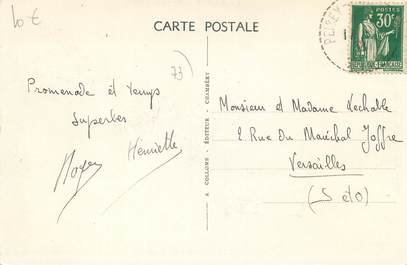 10 €
CARTE POSTALE
POSTES
30c
RÉPUBLIQUE FRANÇAISE
PEISEY
73)
Promenade et temps
superbes
Henriette
Monsieur et Madame Lechable
2 Rue Du Maréchal Joffre
Versailles
(S et O)
A. COLLOMB, ÉDITEUR - CHAMBÉRY